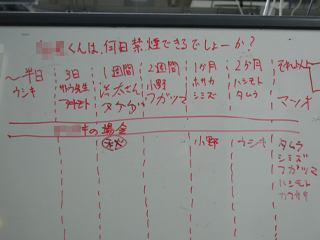 くんは、何日禁煙できるでしょーか？
〜半日 3日 1週間 2週間 1か月 2か月 それ以上
ウシキ サトウ先生 洋太さん 小野 ホサカ ハシモト マツオ
フガツマ シミズ タムラ
の場合
小野 ウシキ タムラ
シミズ
フガツマ
ハシモト